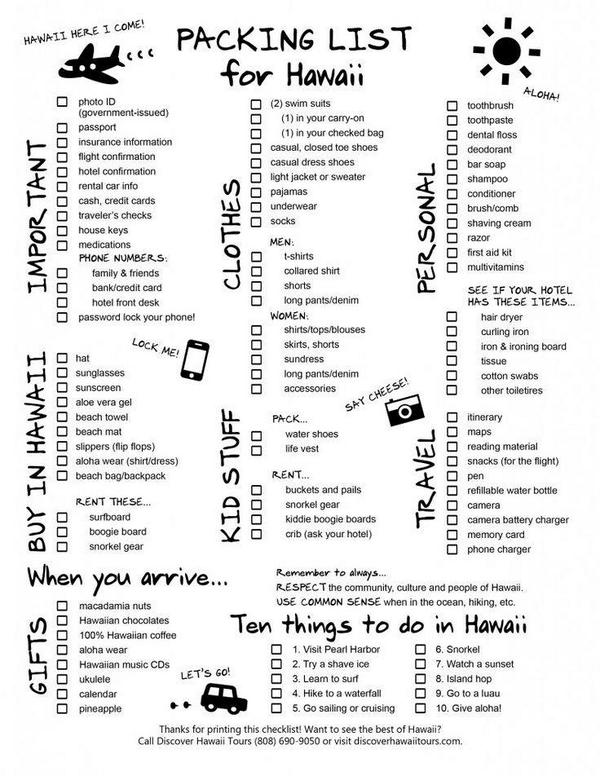 HAWAII HERE I COME!
PACKING LIST
for Hawaii
ALOHA!
IMPORTANT
photo ID
(government-issued)
passport
insurance information
flight confirmation
hotel confirmation
rental car info
cash, credit cards
traveler's checks
house keys
medications
PHONE NUMBERS:
family & friends
bank/credit card
hotel front desk
password lock your phone!
LOCK ME!
BUY IN HAWAII
hat
sunglasses
sunscreen
aloe vera gel
beach towel
beach mat
slippers (flip flops)
aloha wear (shirt/dress)
beach bag/backpack
RENT THESE...
surfboard
boogie board
snorkel gear
CLOTHES
(2) swim suits
(1) in your carry-on
(1) in your checked bag
casual, closed toe shoes
casual dress shoes
light jacket or sweater
pajamas
underwear
socks
MEN:
t-shirts
collared shirt
shorts
long pants/denim
WOMEN:
shirts/tops/blouses
skirts, shorts
sundress
long pants/denim
accessories
SAY CHEESE!
KID STUFF
PACK...
water shoes
life vest
RENT...
buckets and pails
snorkel gear
kiddie boogie boards
crib (ask your hotel)
PERSONAL
toothbrush
toothpaste
dental floss
deodorant
bar soap
shampoo
conditioner
brush/comb
shaving cream
razor
first aid kit
multivitamins
SEE IF YOUR HOTEL
HAS THESE ITEMS...
hair dryer
curling iron
iron & ironing board
tissue
cotton swabs
other toiletires
TRAVEL
itinerary
maps
reading material
snacks (for the flight)
pen
refillable water bottle
camera
camera battery charger
memory card
phone charger
When you arrive...
GIFTS
macadamia nuts
Hawaiian chocolates
100% Hawaiian coffee
aloha wear
Hawaiian music CDs
ukulele
calendar
pineapple
LET'S GO!
Remember to always...
RESPECT the community, culture and people of Hawaii.
USE COMMON SENSE when in the ocean, hiking, etc.
Ten things to do in Hawaii
1. Visit Pearl Harbor
2. Try a shave ice
3. Learn to surf
4. Hike to a waterfall
5. Go sailing or cruising
6. Snorkel
7. Watch a sunset
8. Island hop
9. Go to a luau
10. Give aloha!
Thanks for printing this checklist! Want to see the best of Hawaii?
Call Discover Hawaii Tours (808) 690-9050 or visit discoverhawaiitours.com.